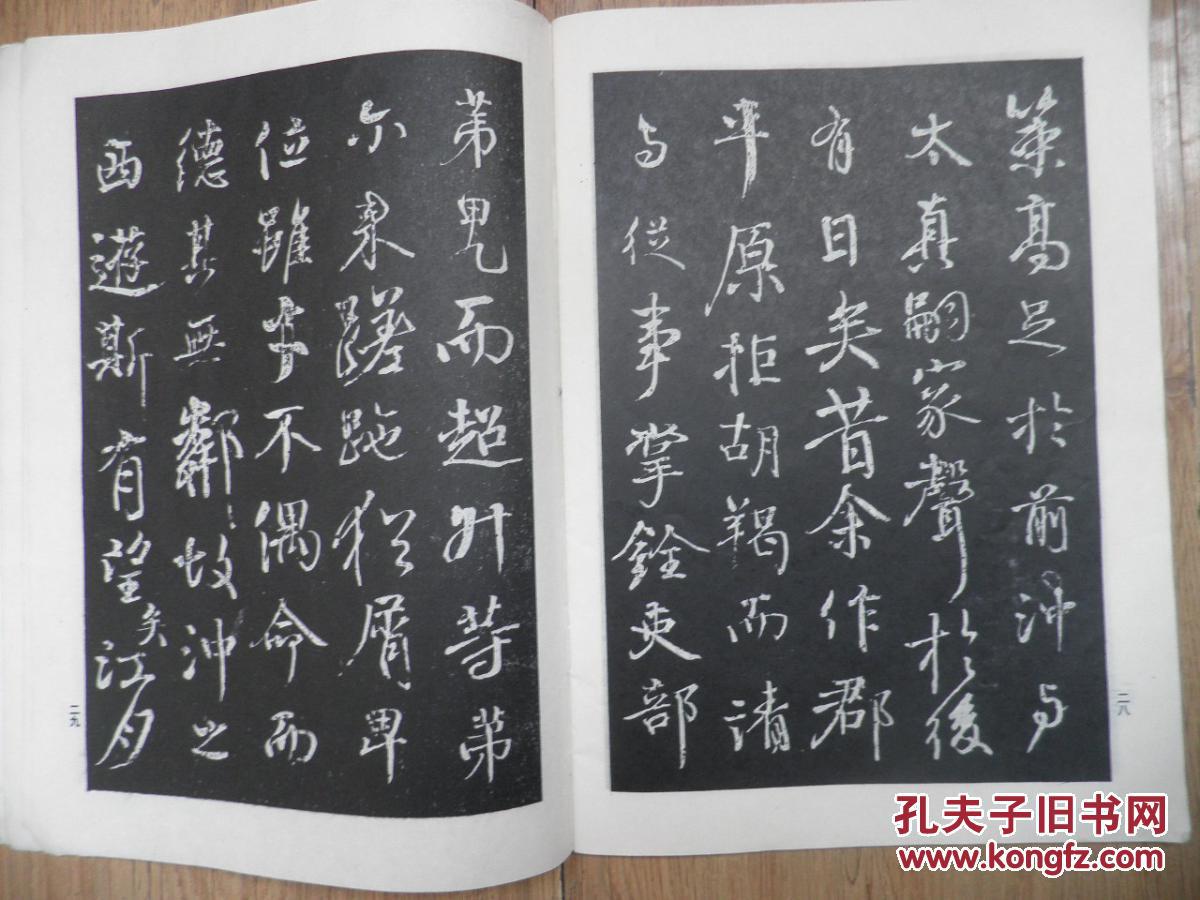 策高足於前沖与
太真嗣家聲於後
有日矣昔余作郡
平原拒胡羯而清
与從事掌銓吏部
二八
第甿而超升等第
尔来蹉跎猶屑卑
位雖才不偶命而
德其無鄰故沖之
西遊斯有望矣江月
二九
孔夫子旧书网
www.kongfz.com